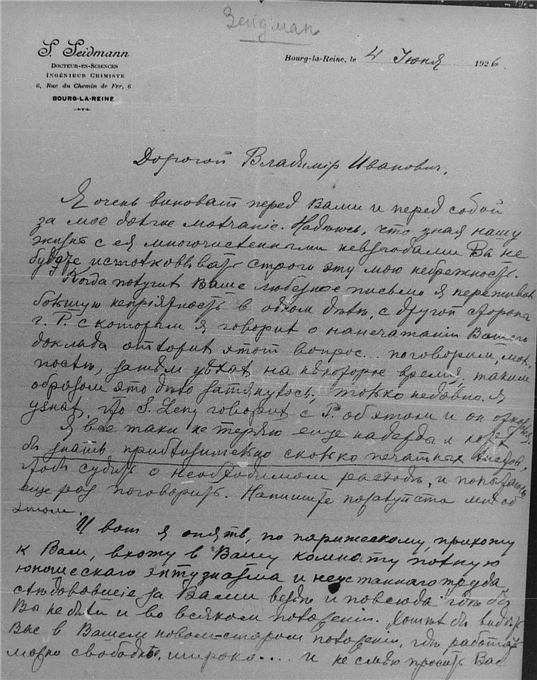 Зейдман
S. Seidmann
Docteur-ès-Sciences
Ingénieur Chimiste
6, Rue du Chemin de Fer, 6
BOURG-LA-REINE
Bourg-la-Reine, le 4 Июня 1926
Дорогой Владимір Иванович.
Я очень виноват перед Вами и перед собой
за мое долгое молчаніе. Надеюсь, что зная нашу
жизнь с ея многочисленными невзгодами Вы не
будете истолковывать строго эту мою небрежность.
Когда получил Ваше любезное письмо я переживал
большую непріятность в одном деле, с другой стороны
г. Р. с которым я говорил о напечатаніи Вашего
доклада отложил этот вопрос... поговорим, мол,
после, затем уехал на некоторое время, таким
образом это дело затянулось. Только недавно я
узнал, что S. Levy говорил с Р. об этом и он
Я все таки не теряю еще надежды и
бы знать приблизительно сколько печатных листов,
чтобы судить о необходимом расходе, и попытаюсь
еще раз поговорить. Напишите пожалуйста мне об
этом.
И вот я опять, по парижскому, прихожу
к Вам, вхожу в Вашу комнату полную
юношескаго энтузиазма и неустаннаго труда
следовавшіе за Вами везде и повсюду где бы
Вы не были и во всяком положеніи. Хотел бы видеть
Вас в Вашем новом-старом положеніи, где работать
можно свободно, широко... и не смею просить Вас